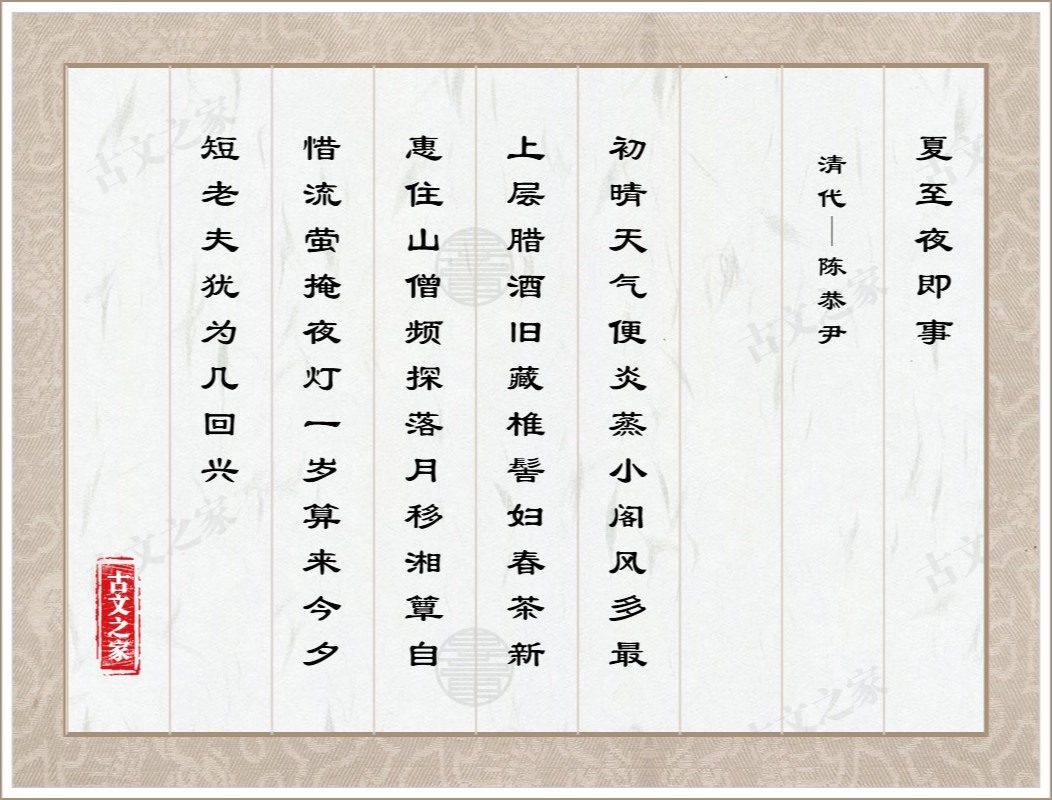 夏至夜即事
清代—陈恭尹
初晴天气便炎蒸小阁风多最
上层腊酒旧藏椎髻妇春茶新
惠住山僧频探落月移湘簟自
惜流萤掩夜灯一岁算来今夕
短老夫犹为几回兴
古文之家
古文之家
古文之家
古文之家
古文之家
古文之家
古文之家